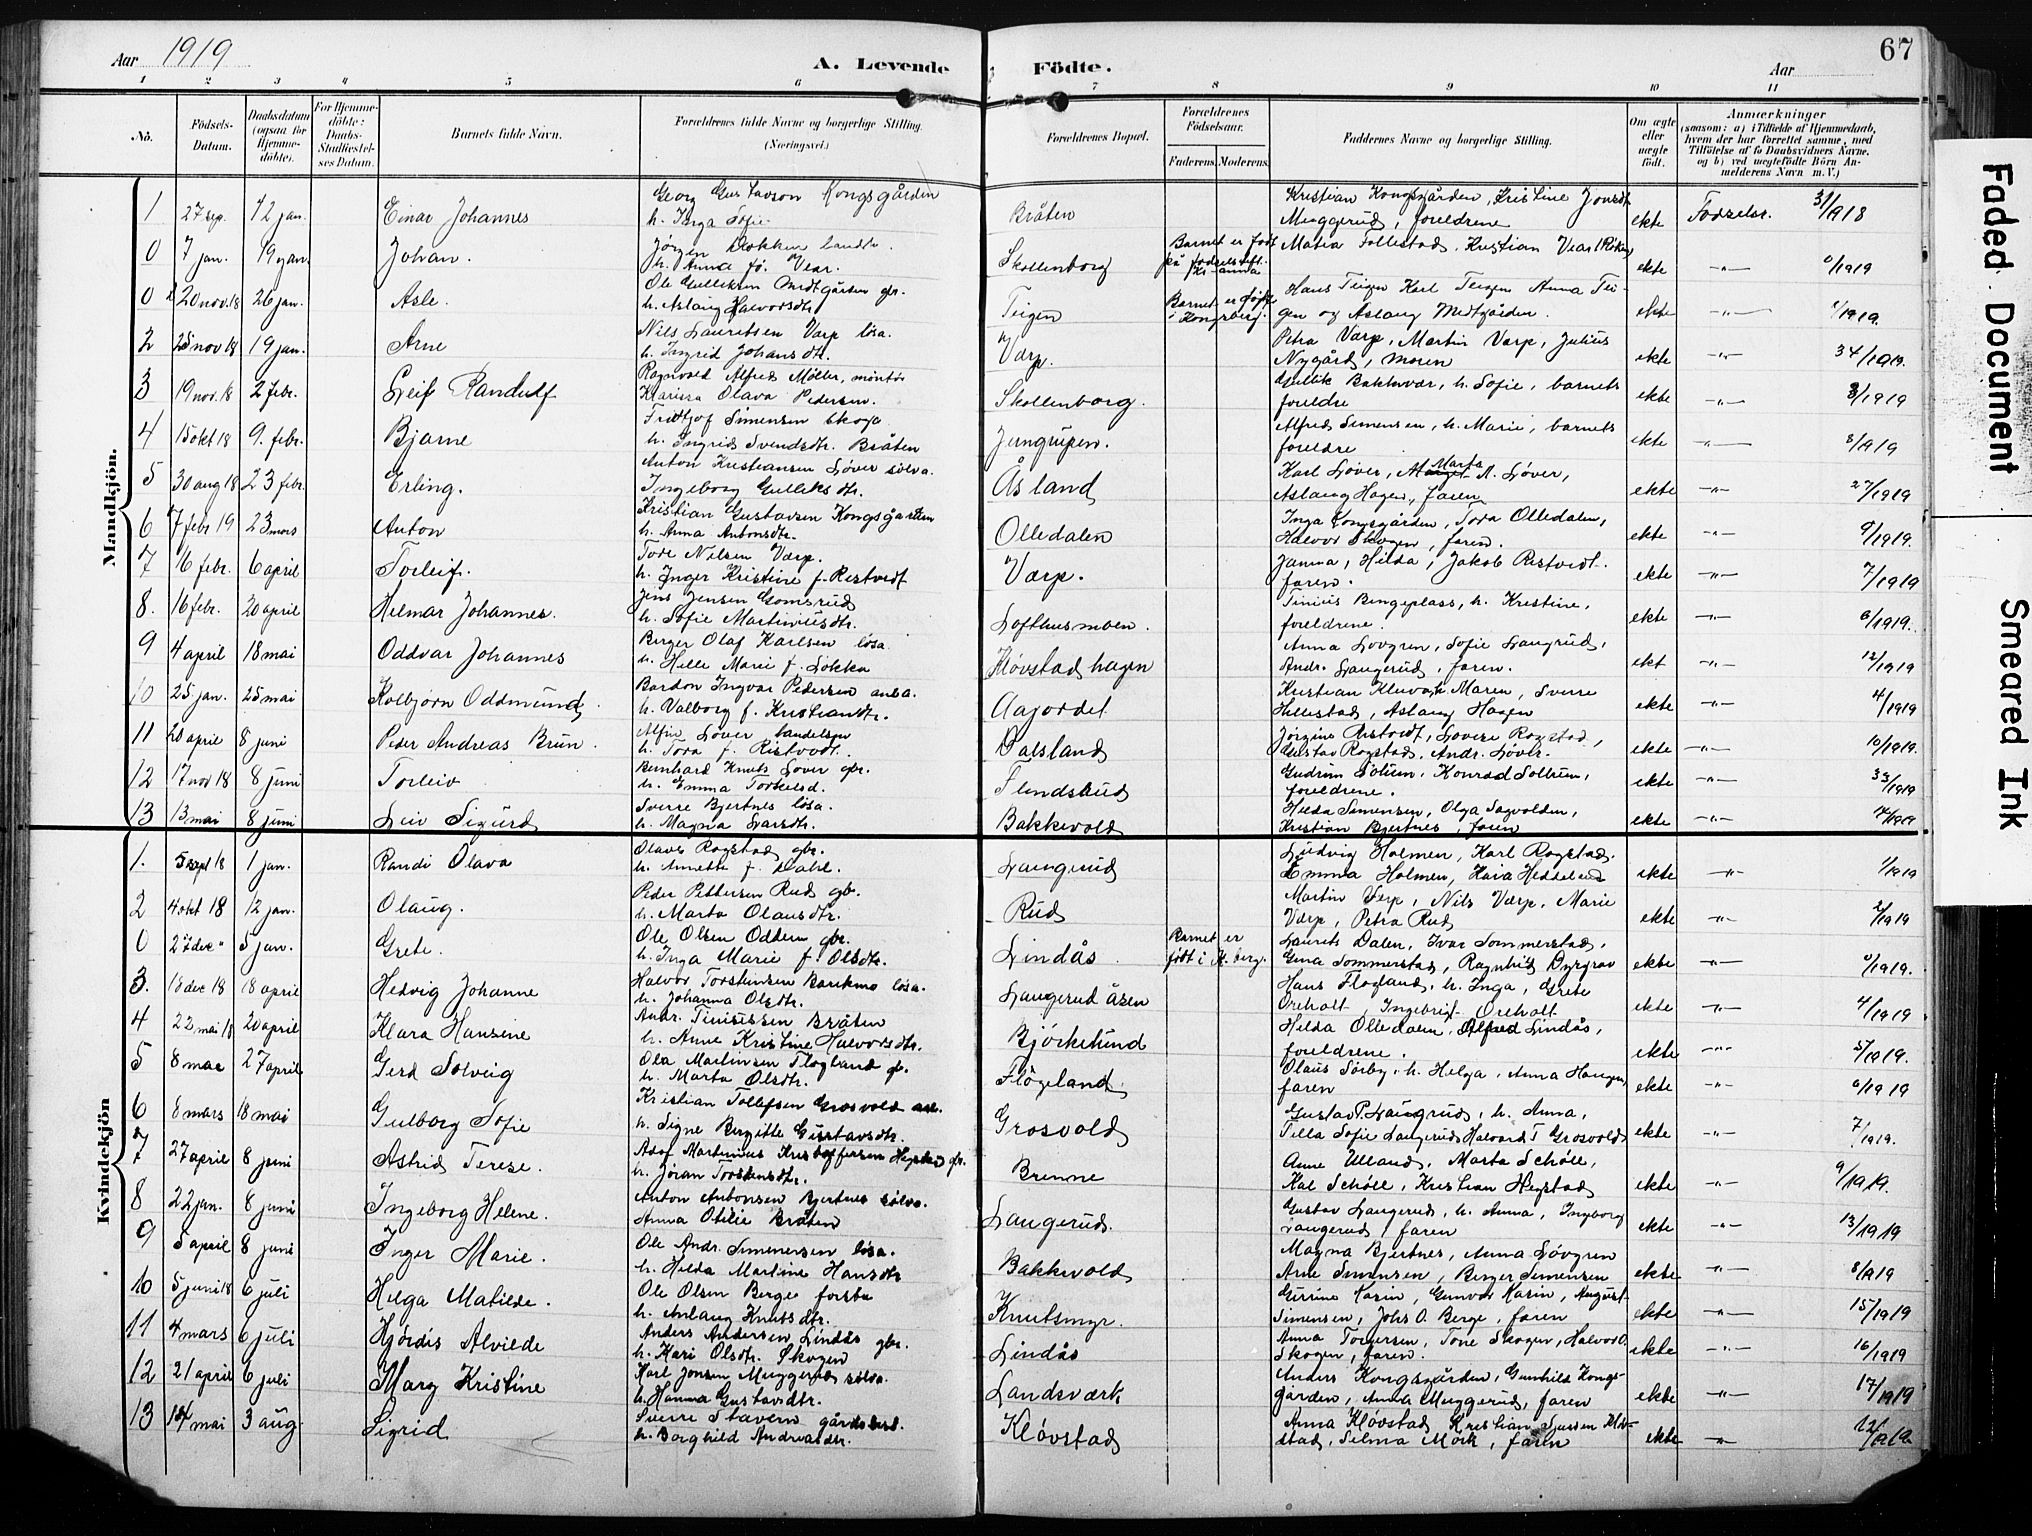 Aar 1919
A. Levende Födte.
Aar
67
1 2 3 4 5 6 7 8 9 10 11
Nô.
Födsels-Datum.
Daabsdatum (ogsaa for Hjemme-döbte).
For Hjemme-döbte: Daabs-Stadfæstel-ses Datum.
Barnets fulde Navn.
Forældrenes fulde Navne og borgerlige Stilling. (Næringsvei.)
Forældrenes Bopæl.
Forældrenes Födselsaar.
Faderens. Moderens.
Faddernes Navne og borgerlige Stilling.
Om ægte eller uægte født.
Anmærkninger
(saasom: a) i Tilfælde af Hjemmedaab, hvem der har forrettet samme, med Tilföielse af to Daabsvidners Navne, og b) ved uægtefödte Börn An-melderens Navn m. V.)
Mandkjön.
1 27 sep. 12 jan. Einar Johannes
Georg Gustavson Kongsgården
h. Inga Sofie
Bråten
Kristian Kongsgården, Kristine Jonsdt
Muggerud, foreldrene
ekte Fodselsr. 31/1918
0 7 jan. 19 jan. Johan.
Jörgen Dokken landh.
h. Anna fö. Vear.
Skollenborg
Barnet er født på fødselsstift. Kr-ania
Matea Follestad, Kristian Vear (Röken)
ekte -"- 0/1919
0 20 nov. 18 26 jan. Asle.
Ole Gulliksen Midtgården gbr.
h. Aslaug Halvorsdtr.
Teigen
Barnet er født i Kongsberg.
Hans Teigen Karl Teigen Anna Tei-
gen og Aslaug Midtgården.
ekte -"- 0/1919.
2 25 nov 18 19 jan. Arne
Nils Lauritsen Værp lösa.
h. Ingrid Johansdtr.
Værp.
Petra Værp, Martin Værp, Julius
Nygård, moren
ekte -"- 34/1919.
3 19 nov. 18 2 febr. Leif Randulf
Ragnvald Alfred Møller, montør
Klarissa Olava Pedersen.
Skollenborg.
Gullik Bakkevær, h. Sofie, barnets
foreldre
ekte -"- 3/1919
4 15 okt 18 9. febr. Bjarne
Fridtjof Simensen Skoga
h. Ingrid Svendsdtr. Bråten
Jungrupen.
Alfred Simensen, h. Marie, barnets
foreldre
ekte -"- 8/1919
5 30 aug 18 23 febr. Erling.
Anton Kristiansen Løver sølva.
Ingeborg Gulliksdtr.
Åsland
Karl Løver, Marta A. Løver,
Aslaug Hagen, faren
ekte -"- 27/1919
6 7 febr 19 23 mars Anton
Kristian Gustavsen Kongsgården
h. Anna Antonsdtr.
Olledalen
Inga Kongsgården, Tora Olledalen,
Halvor Skogen, faren.
ekte -"- 9/1919.
7 16 febr. 6 april Torleif.
Tore Nilsen Værp.
h. Inger Kristine f. Ristvedt
Værp.
Janna, Hilda, Jakob Ristvedt.
faren.
ekte -"- 7/1919
8. 16 febr. 20 april Hilmar Johannes.
Jens Jensen Gomsrud
h. Sofie Martiniusdtr.
Lofthusmoen.
Tinius Bingeplass, h. Kristine,
foreldrene.
ekte -"- 6/1919.
9 4 april 18 mai Oddvar Johannes
Birger Olaf Karlsen lösa
h. Helle Marie f. Løkka
Kløvstadhagen
Anna Lövgren, Sofie Laugrud,
Andr. Laugerud, faren.
ekt -"- 12/1919
10 25 jan. 25 mai Kolbjørn Oddmund
Bardon Ingvar Pedersen anba.
h. Valborg f. Kristiansdtr.
Aajordet
Kristian Kleiva, h. Maren, Sverre
Hellestad, Aslaug Haagen
ekte -"- 4/1919
11 20 april 8 juni Peder Andreas Brun.
Alfin Løver handelsm
h. Tora f. Ristvedt.
Dalsland
Jørgine Ristvedt, Lovise Rogstad,
Gustav Rogstad, Andr. Løver.
ekte -"- 10/1919.
12 17 nov 18 8 juni Torleiv
Bernhard Knuts Løver gbr.
h. Emma Torkelsd.
Flendshud
Gudrun Solum, Konrad Solum,
foreldrene.
ekte -"- 33/1919
13 13 mai 8 juni Leiv Sigurd
Sverre Bjertnes lösa.
h. Magna Larsdtr.
Bakkevold
Hilda Simensen, Olga Sagvolden,
Kristian Bjertnes, faren
ekte -"- 14/1919
Kvindekjön
1. 5 sept 18 1 jan. Randi Olava
Olaves Rogstad gbr.
h. Anette f. Dahl.
Laugerud
Ludvig Holmen, Karl Rogstad.
Emma Holmen,
ekte -"- 1/1919
2 4 okt 18 12 jan. Olaug.
Peder Pettersen Rud gbr.
h. Marta Olausdtr.
Rud
Martin Verp, Nils Værp, Marie
Værp, Petra Rud
ekte 2/1919
0 27 dec " 5 jan. Grete.
Ole Olsen Oddern gbr.
h. Inga Marie f. Olsdtr.
Lindås
Barnet er født i K.berg.
Laurits Dalen, Ivar Sommerstad,
Gina Sommerstad, Ragnhild Dyrgrav
ekte -"- 0/1919.
3. 18 dec 18 18 april Hedvig Johanne
Halvor Torstensen Barikmo lösa.
h. Johanna Olsdtr.
Laugerudåsen
Hans Flogland, h. Inga, Grete
Oreholt, Ingebrigt Oreholt
ekte -"- 4/1919
4 22 mai 18 20 april Klara Hansine
Andr. Tinissen Bråten
h. Anne Kristine Halvorsdtr.
Bjørkelund
Helda Olledalen, Alfred Lindås,
foreldrene.
ekte -"- 5/1919.
5 8 mar 27 april Gerd Solveig
Ola Martinsen Flogland g.
h. Marta Olsdtr.
Flögeland
Olaus Sörby, h. Helga, Anna Haugen,
faren
ekte -"- 6/1919
6 8 mars 18 mai Gulborg Sofie
Kristian Tollefsen Grosvold
h. Signe Birgitte Gustavsdtr.
Grosvold
Gustav P. Laugrud, h. Anna,
Tilla Sofie Laugerud, Halvard T Grosvold
ekte -"- 7/1919.
7 27 april 8 juni Astrid Terese.
Adof Martinius Kristoffersen Hegstad gbr.
h. Jöran Torstensdtr.
Brenne
Anne Ulland, Marta Schöll,
Kal Schöll, Kristian Hegstad
ekte -"- 9/1919.
8 22 jan. 8 juni Ingeborg Helene.
Anton Antonsen Bjertnes sølva.
Anna Otilie Bråten
Laugerud.
Gustav Laugerud, h. Anna, Ingborg
Laugerud, faren
ekte -"- 13/1919
9 5 april 8 juni Inger Marie.
Ole Andr. Simensen lösa.
h. Hilda Martine Hansdtr
Bakkevold
Magna Bjertnes, Anna Løvgren
Arne Simensen, Birger Simensen
ekte -"- 8/1919
10 5 juni 18 6 juli Helga Matilde.
Ole Olsen Berge forstu
h. Anlaug Knutsdtr.
Knutsmyr.
Gurine Karin, Gunvor Karin, August
Simensen, Johs O. Berge, faren
ekte -"- 15/1919
11 4 mars 6 juli Hjördis Alvilde
Anders Andersen Lindås gbr.
h. Kari Olsdtr. Skogen
Lindås
Anna Torgersen, Tone Skogen, Halvor O.
Skogen, faren.
ekte -"- 16/1919
12 21 april 6 juli Mary Kristine
Karl Jonsen Muggerud sølva.
h. Hanna Gustavdtr.
Landsværk
Anders Kongsgården, Gunhild Kongs-
gården, Anna Muggerud, faren
ekte -"- 17/1919
13 14 mai 3 aug. Sigrid
Sverre Stavern gårdsbest.
h. Borghild Andreasdtr.
Kløvstad
Anna Kløvstad, Kristian Jussen Klöv-
stad, Selma Mörk, faren
ekte -"- 12/1919.
Faded Document
Smeared Ink